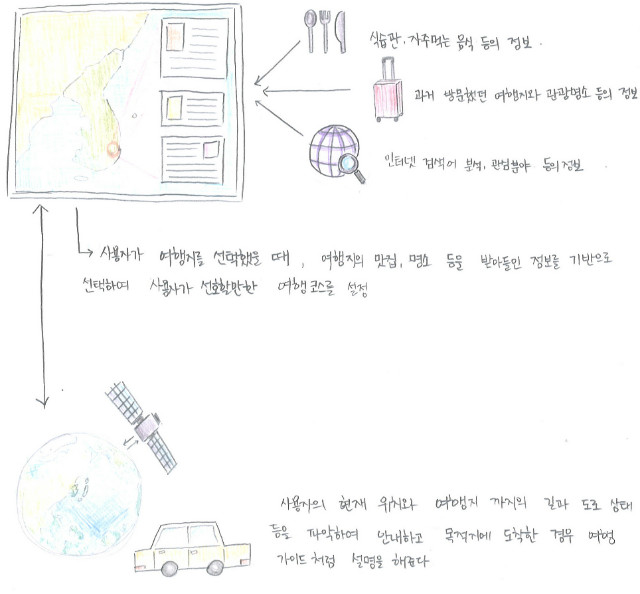 식습관, 자주먹는 음식 등의 정보.
과거 방문했던 여행지와 관광명소 등의 정보
인터넷 검색어 분석, 관심분야 등의 정보
사용자가 여행지를 선택했을 때, 여행지의 맛집, 명소 등을 받아들인 정보를 기반으로
선택하여 사용자가 선호할만한 여행코스를 설정
사용자의 현재 위치와 여행지 까지의 길과 도로 상태
등을 파악하여 안내하고 목적지에 도착한 경우 여행
가이드처럼 설명을 해준다